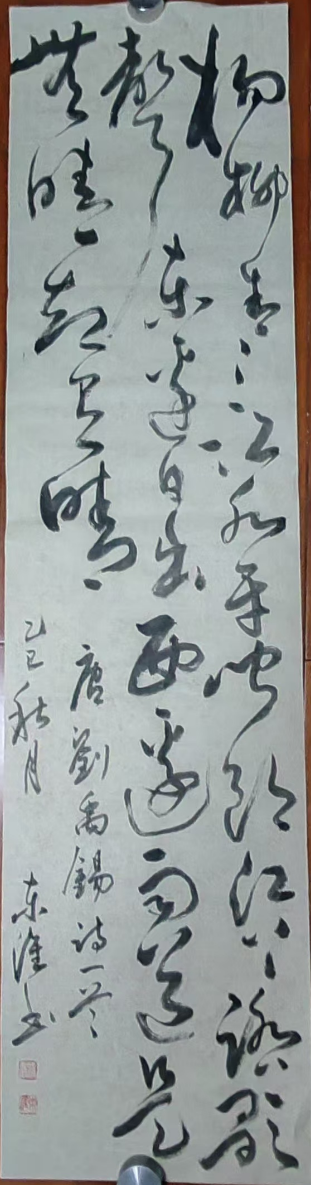 楊柳青〻江水平聞郎江上踏歌
聲东邊日出西邊雨道是
無晴却有晴
唐劉禹錫詩一首
乙巳秋月 东淮书